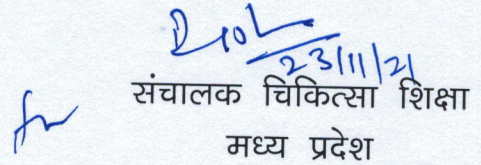 23/11/21
संचालक चिकित्सा शिक्षा
मध्य प्रदेश